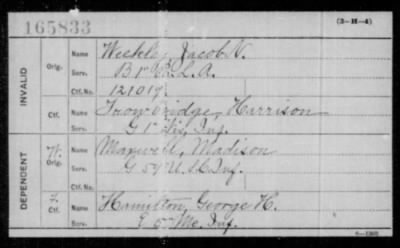 165833
(3-H-4)
INVALID
Orig.
Name Weekly, Jacob H.
Serv. B 1" L.A.
Ctf. No. 121019
Ctf.
Name Trowbridge, Harrison
Serv. G 1" Inf.
DEPENDENT
W. Orig.
Name Maxwell, Madison
Serv. G 59 U.S.C. Inf.
Ctf. No.
Ctf.
Name Hamilton, George H.
Serv. E 5" Me. Inf.